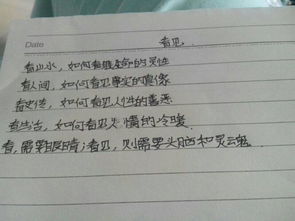 Date
看见
看山水，如何看到生命的灵性
看人间，如何看见事实的真像
看史传，如何看见人性的善恶
看生活，如何看见人情的冷暖
看，需要眼睛；看见，则需要头脑和灵云鬼